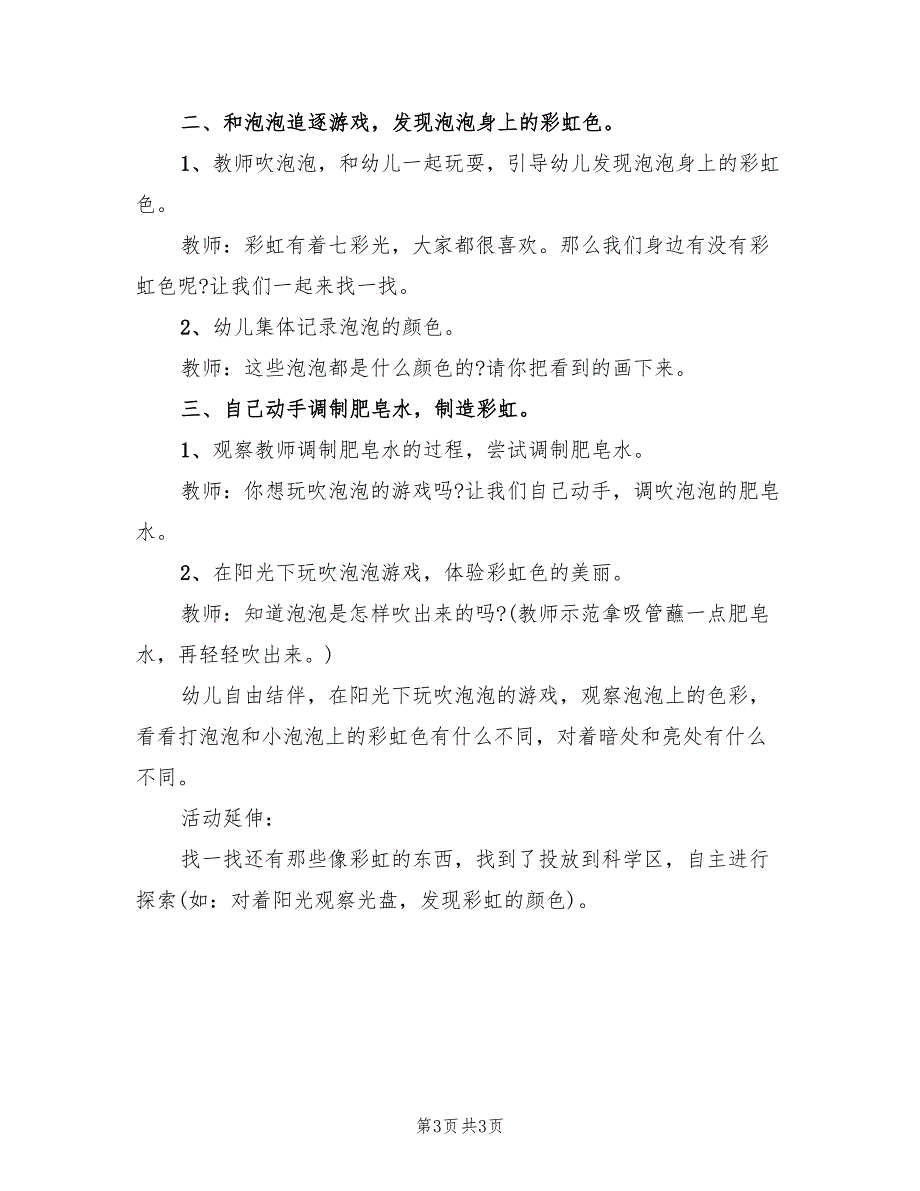 二、和泡泡追逐游戏，发现泡泡身上的彩虹色。
1、教师吹泡泡，和幼儿一起玩耍，引导幼儿发现泡泡身上的彩虹
色。
教师：彩虹有着七彩光，大家都很喜欢。那么我们身边有没有彩
虹色呢?让我们一起来找一找。
2、幼儿集体记录泡泡的颜色。
教师：这些泡泡都是什么颜色的?请你把看到的画下来。
三、自己动手调制肥皂水，制造彩虹。
1、观察教师调制肥皂水的过程，尝试调制肥皂水。
教师：你想玩吹泡泡的游戏吗?让我们自己动手，调吹泡泡的肥皂
水。
2、在阳光下玩吹泡泡游戏，体验彩虹色的美丽。
教师：知道泡泡是怎样吹出来的吗?(教师示范拿吸管蘸一点肥皂
水，再轻轻吹出来。)
幼儿自由结伴，在阳光下玩吹泡泡的游戏，观察泡泡上的色彩，
看看打泡泡和小泡泡上的彩虹色有什么不同，对着暗处和亮处有什么
不同。
活动延伸：
找一找还有那些像彩虹的东西，找到了投放到科学区，自主进行
探索(如：对着阳光观察光盘，发现彩虹的颜色)。
第3页 共3页